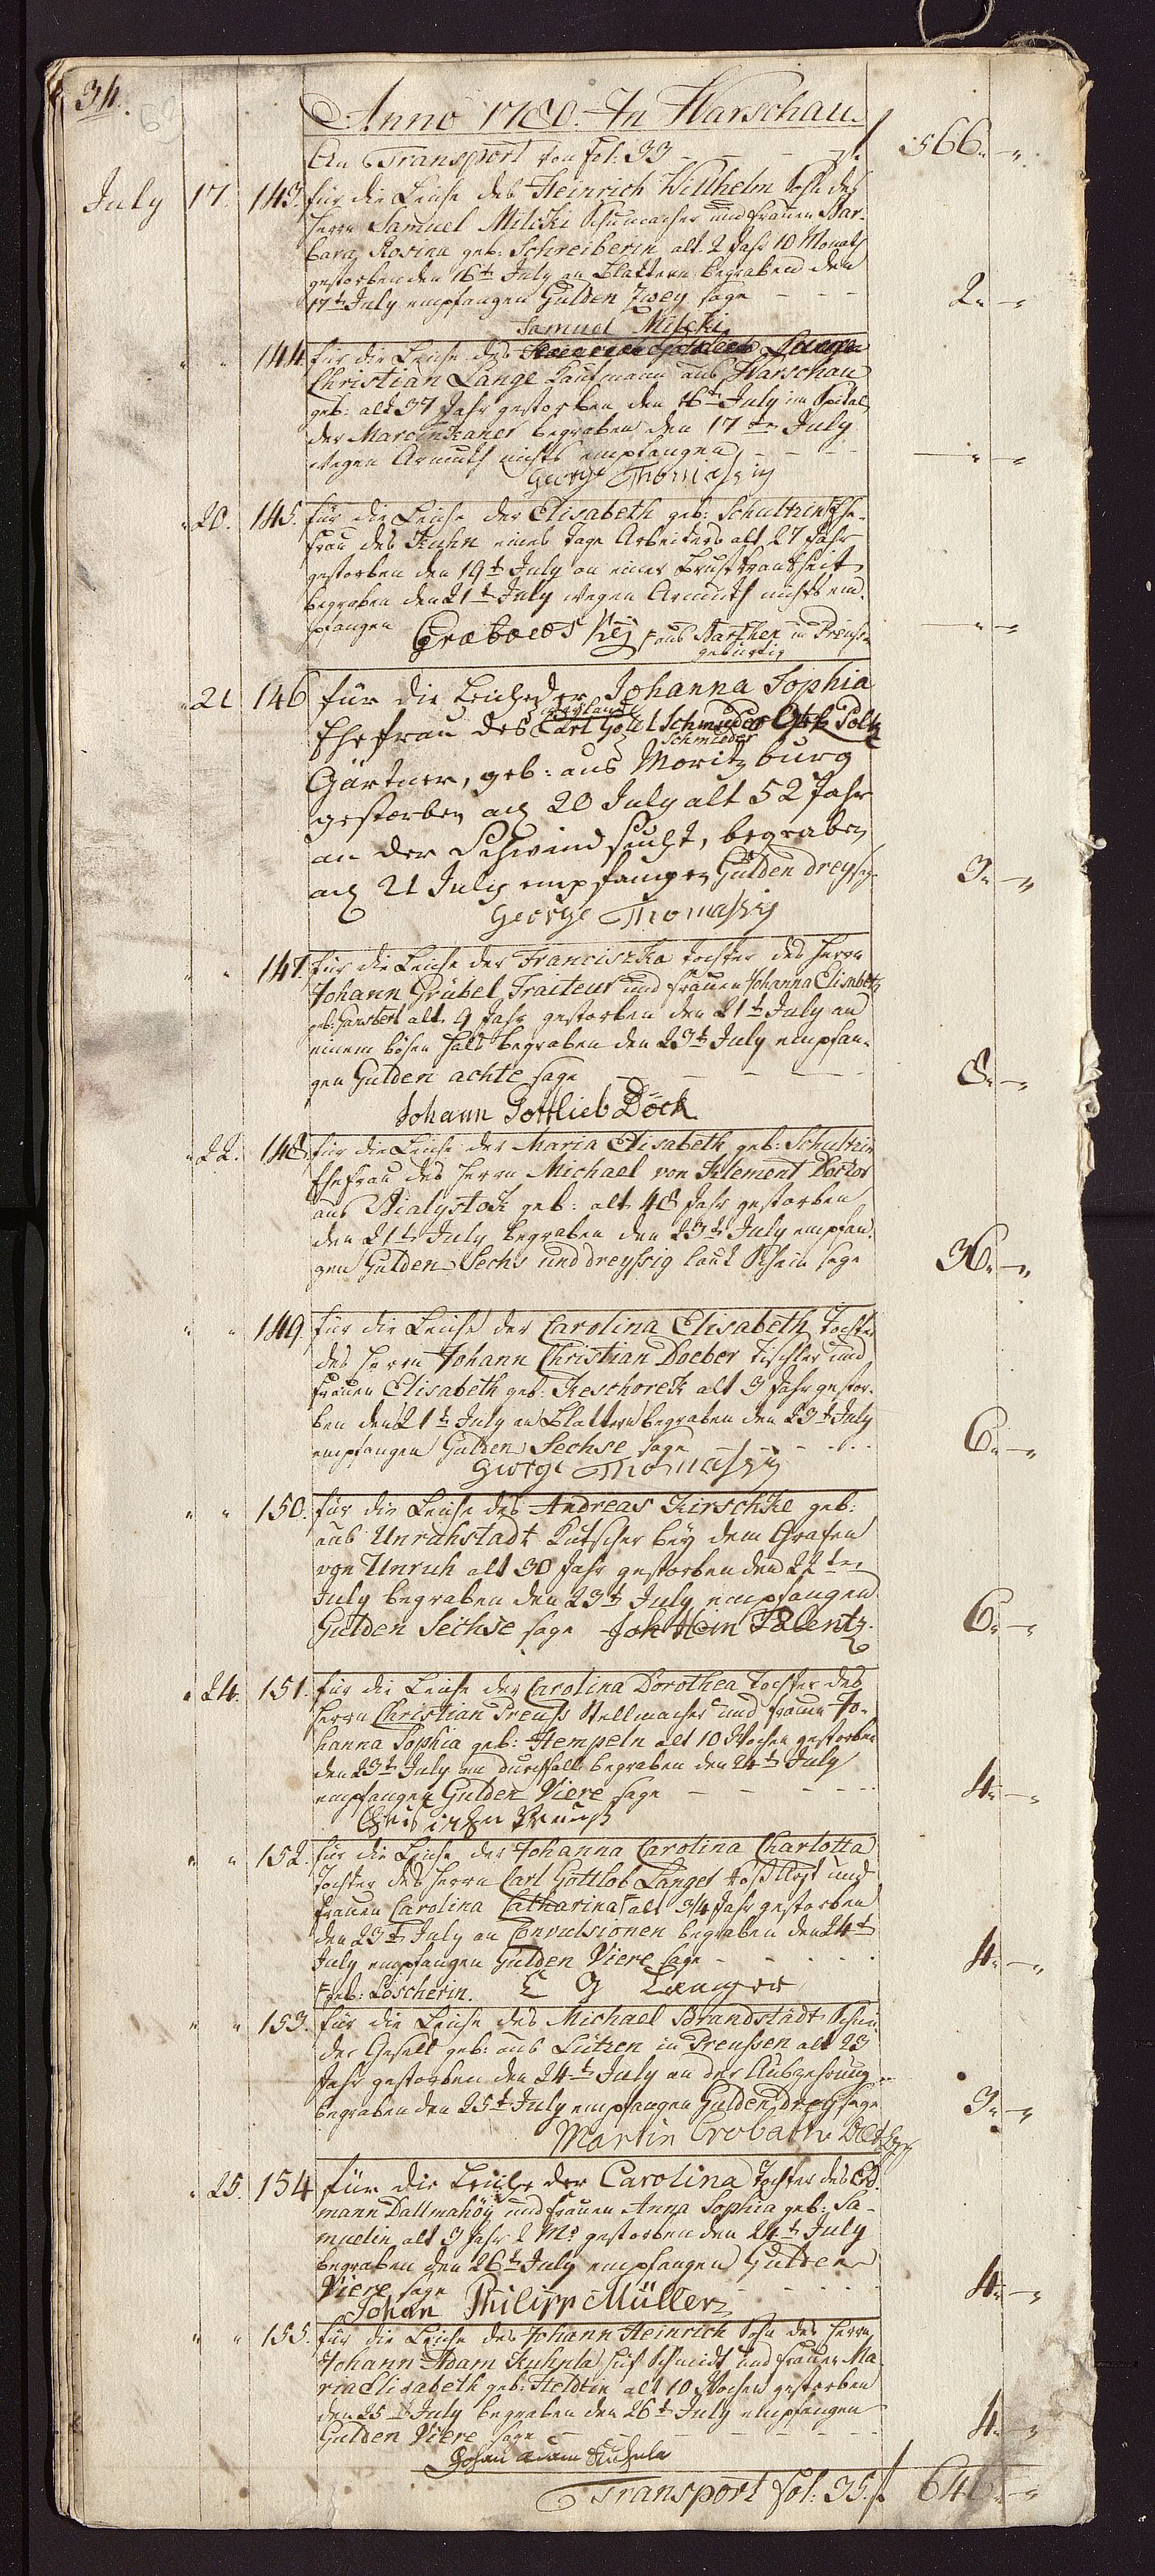 34.
Anno 1780. In Warschau
An Transport von fol: 33 - - - f 566. "
July 17. 143. für die Leiche des Heinrich Willhelm Sohn des
Herrn Samuel Milcki Schumacher und Frauen Bar-
bara Rosina geb: Schreiberin alt 2 Jahr 10 Monath
gestorben den 16t July an Blattern begraben den
17t July empfangen Gulden Zwey sage - - - 2. "
Samuel Milcki
" " 144. für die Leiche des
Christian Lange Kaufmann aus Warschau
geb: alt 37 Jahr gestorben den 16t July im Spital
der Marcinkaner begraben den 17ten July
wegen Armuth nichts empfangen - - - " "
George Thomassin
" 20. 145. für die Leiche der Elisabeth geb: Schultzin Ehe-
frau des Kuhn eines Tage Arbeiters alt 27 Jahr
gestorben den 19t July an einer Brustkrankheit
begraben den 21t July wegen Armuth nichts em-
pfangen aus Barthen in Preuss: - " "
gebürtig
" 21 146 für die Leiche der Johanna Sophia
weyland
Ehefrau des Carl Gottl Schmieder
Schmieder
Gärtner, geb: aus Moritzburg
gestorben am 20 July alt 52 Jahr
an der Schwindsucht, begraben
am 21 July empfangen Gulden drey sage 3. "
George Thomassin
" " 147. für die Leiche der Franciszka tochter des Herrn
Johann Grübel Traiteur und Frauen Johanna Elisabeth
geb: alt 9 Jahr gestorben den 21t July an
einem bösen Hals begraben den 23t July empfan-
gen Gulden achte sage - - - 8. "
Johann Gottlieb Böck
" 22. 148. für die Leiche der Maria Elisabeth geb: Schultzin
Ehefrau des Herrn Michael von Klement Doctor
aus Bialystok geb: alt 48 Jahr gestorben
den 21t July begraben den 23t July empfan-
gen Gulden Sechs und dreyssig laut Schein sage 36. "
" " 149. für die Leiche der Carolina Elisabeth Tochter
des Herrn Johann Christian Doeber Tischler und
Frauen Elisabeth geb: Keschoreck alt 3 Jahr gestor-
ben den 21t July an Blattern begraben den 23t July
empfangen Gulden Sechse sage - - - 6. "
George Thomassin
" " 150. für die Leiche des Andreas Kirschke geb:
aus Unruhstadt Kutscher bey dem Grafen
von Unruh alt 30 Jahr gestorben den 22ten
July begraben den 23t July empfangen
Gulden Sechse sage Joh Hein 6. "
" 24. 151. für die Leiche der Carolina Dorothea Tochter des
Herrn Christian Preuss Stellmacher und Frauen Jo-
hanna Sophia geb: Hempeln alt 10 Wochen gestorben
den 23t July am durchfall begraben den 24t July
empfangen Gulden Viere sage - - - 4. "
Christian Preuß
" " 152. für die Leiche der Johanna Carolina Charlotta
Tochter des Herrn Carl Gottlob Langer und
Frauen Carolina Catharina + alt 3/4 Jahr gestorben
den 23t July an Convulsionen begraben den 24t
July empfangen Gulden Viere sage - - - 4. "
+ geb: Löscherin. C G Langer
" " 153. für die Leiche des Michael Brandstädt Schnei-
der Gesell geb: aus Lützen in Preussen alt 23
Jahr gestorben den 24t July an der Auszehrung
begraben den 25t July empfangen Gulden drey sage 3. "
Martin Crobath
" 25. 154 für die Leiche der Carolina Tochter des Erd-
mann Dallmahöÿ und Frauen Anna Sophia geb: Sa-
muelin alt 3 Jahr 2 Mo gestorben den 24t July
begraben den 26t July empfangen Gulden
Viere sage - - - 4. "
Johan Philipp Müller
" " 155. für die Leiche des Johann Heinrich Sohn des Herrn
Johann Adam Kuhnla Huf Schmidt und Frauen Ma-
ria Elisabeth geb: Heldtin alt 10 Wochen gestorben
den 25 July begraben den 26t July empfangen
Gulden Viere sage - - - 4. "
Johan Adam Kuhnla
Transport fol: 35. f 646. "